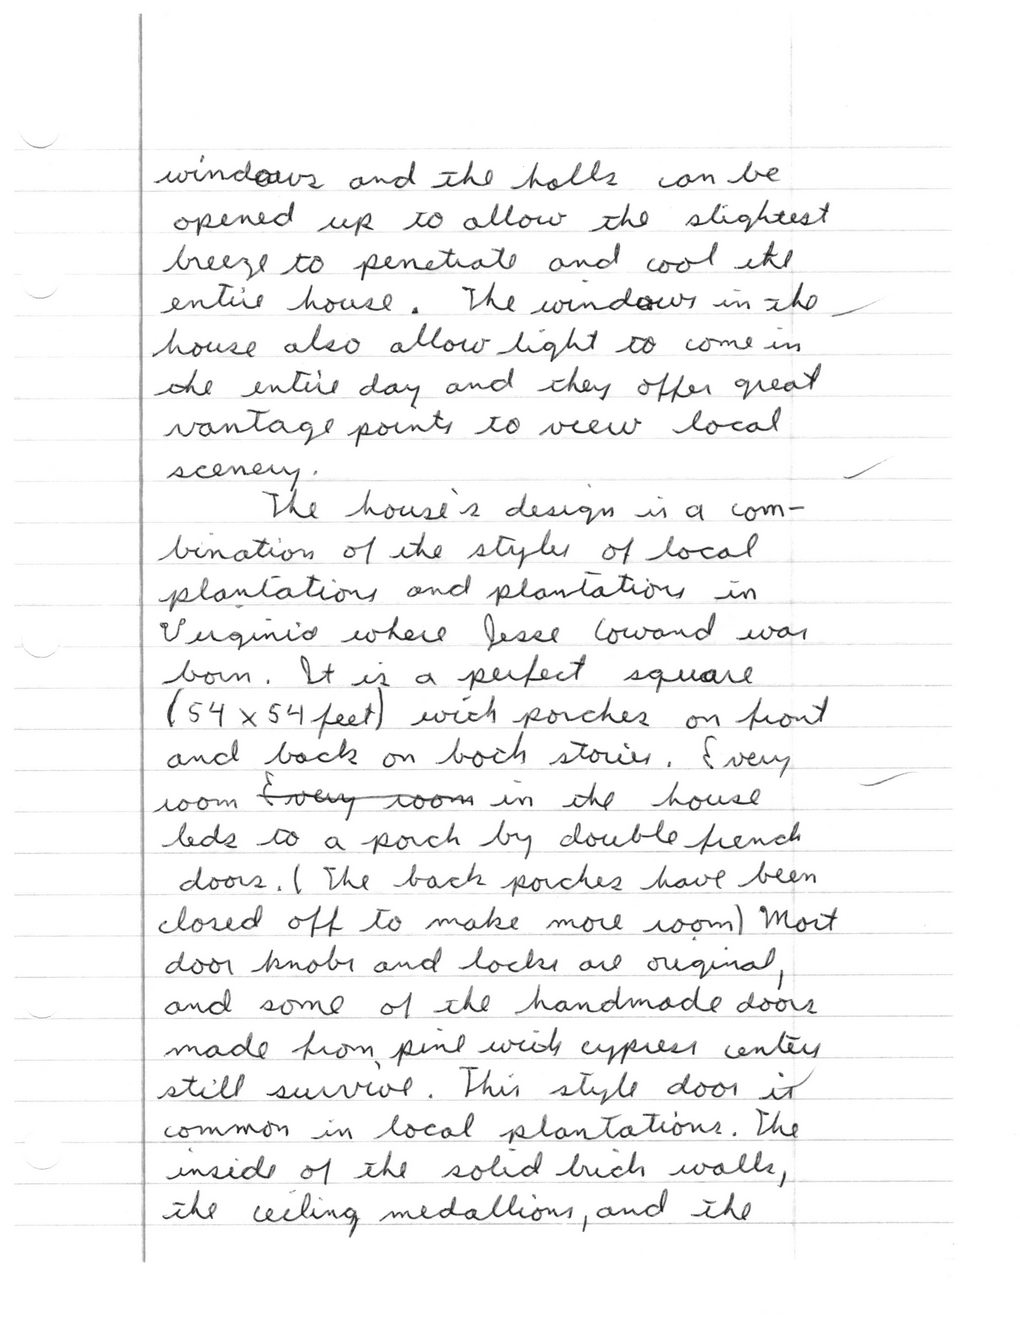 windows and the halls can be
opened up to allow the slightest
breeze to penetrate and cool the
entire house. The windows in the
house also allow light to come in
the entire day and they offer great
vantage points to view local
scenery.
The house's design is a com-
bination of the styles of local
plantations and plantations in
Virginia where Jesse Cowand was
born. It is a perfect square
(54 x 54 feet) with porches on front
and back on both stories. Every
room Every room in the house
leds to a porch by double french
doors. (The back porches have been
closed off to make more room) Most
door knobs and locks are original,
and some of the handmade doors
made from pine with cypress centers
still survive. This style door is
common in local plantations. The
inside of the solid brick walls,
the ceiling medallions, and the